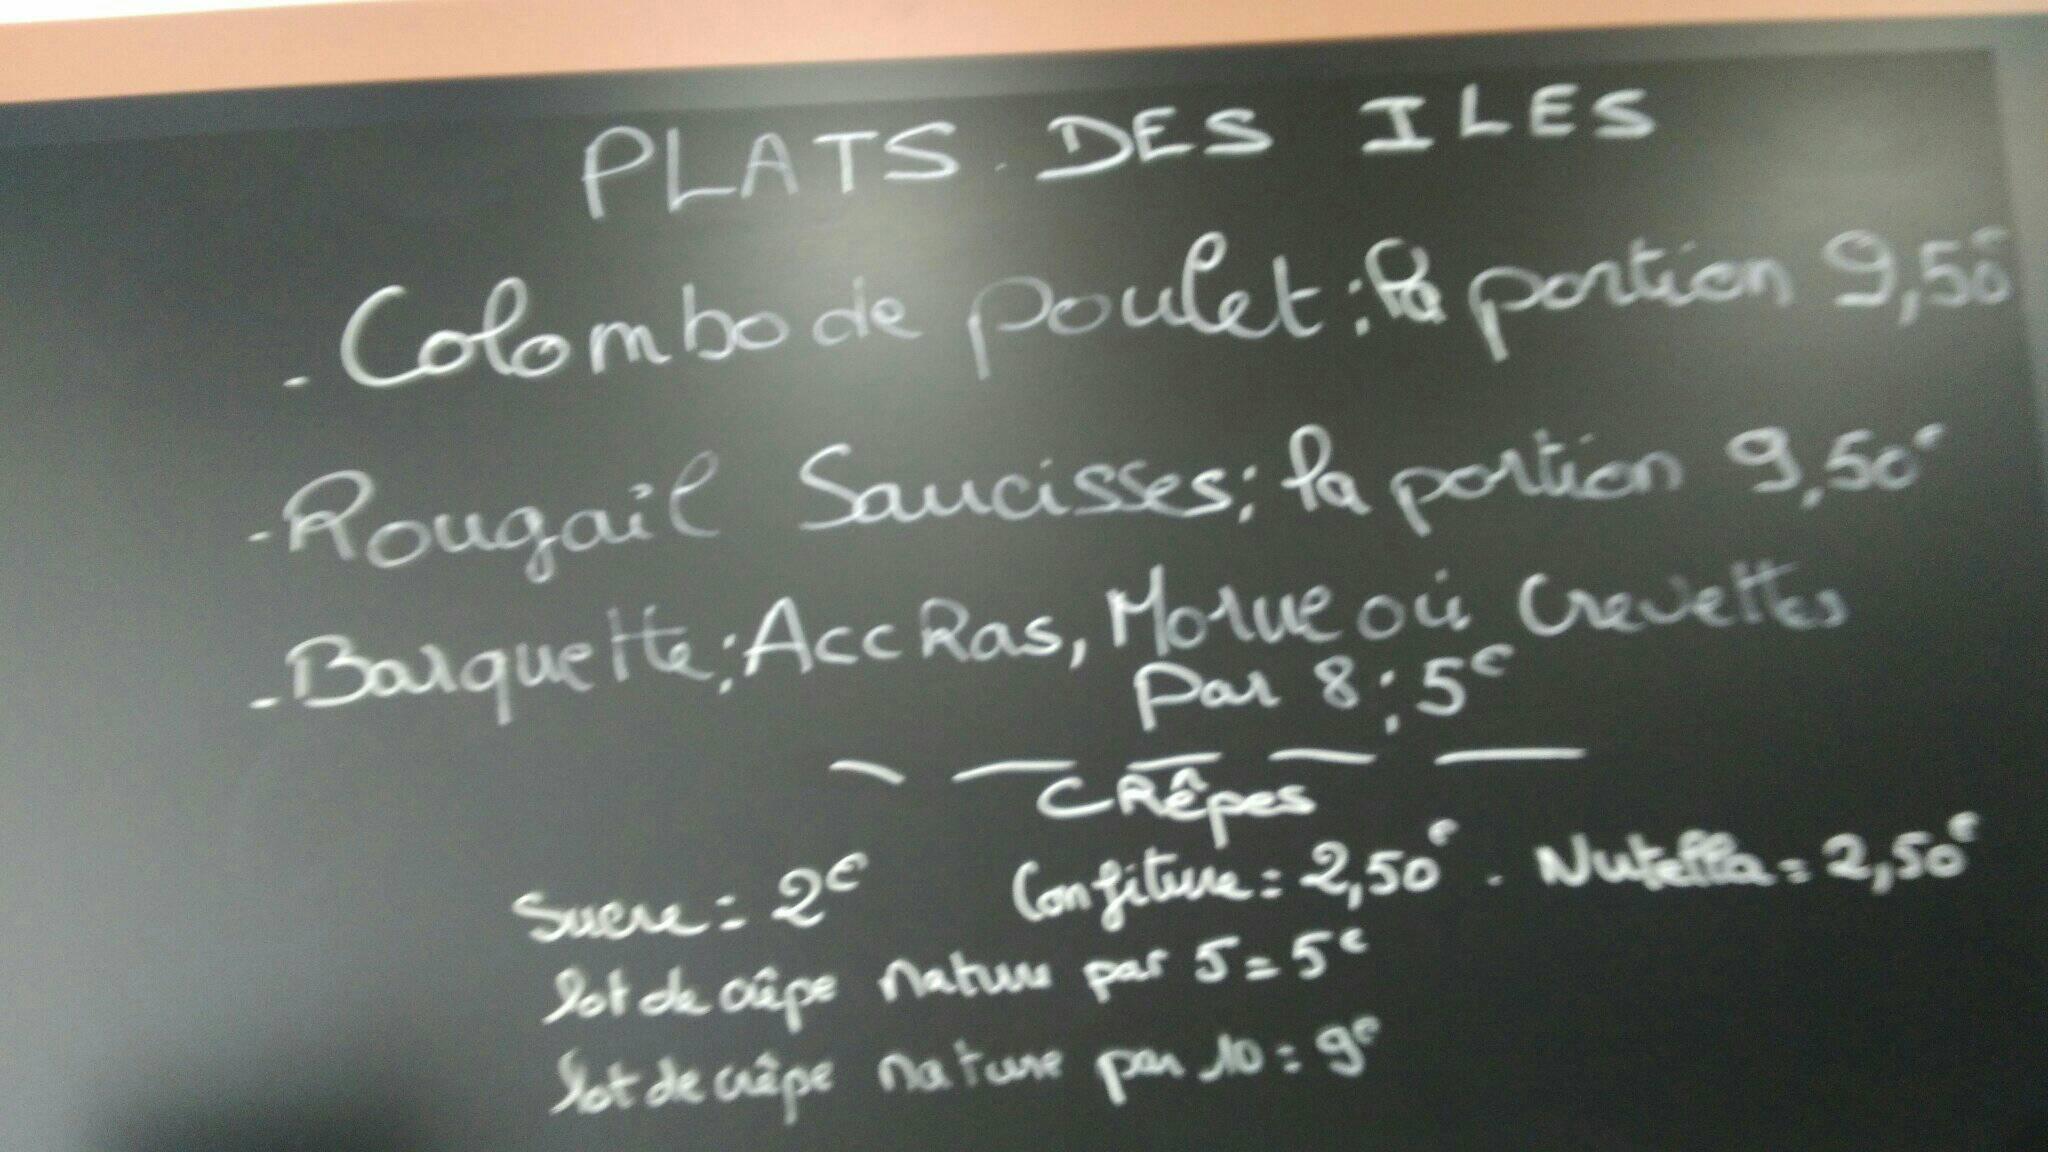 PLATS DES ILES
- Colombo de poulet : la portion 9,50€
- Rougail Saucisses : la portion 9,50€
- Barquette : AccRas, Morue où Crevettes
par 8 : 5€
CRêpes
Sucre = 2€ Confiture = 2,50€ - Nutella = 2,50€
lot de crêpe nature par 5 = 5€
lot de crêpe nature par 10 = 9€